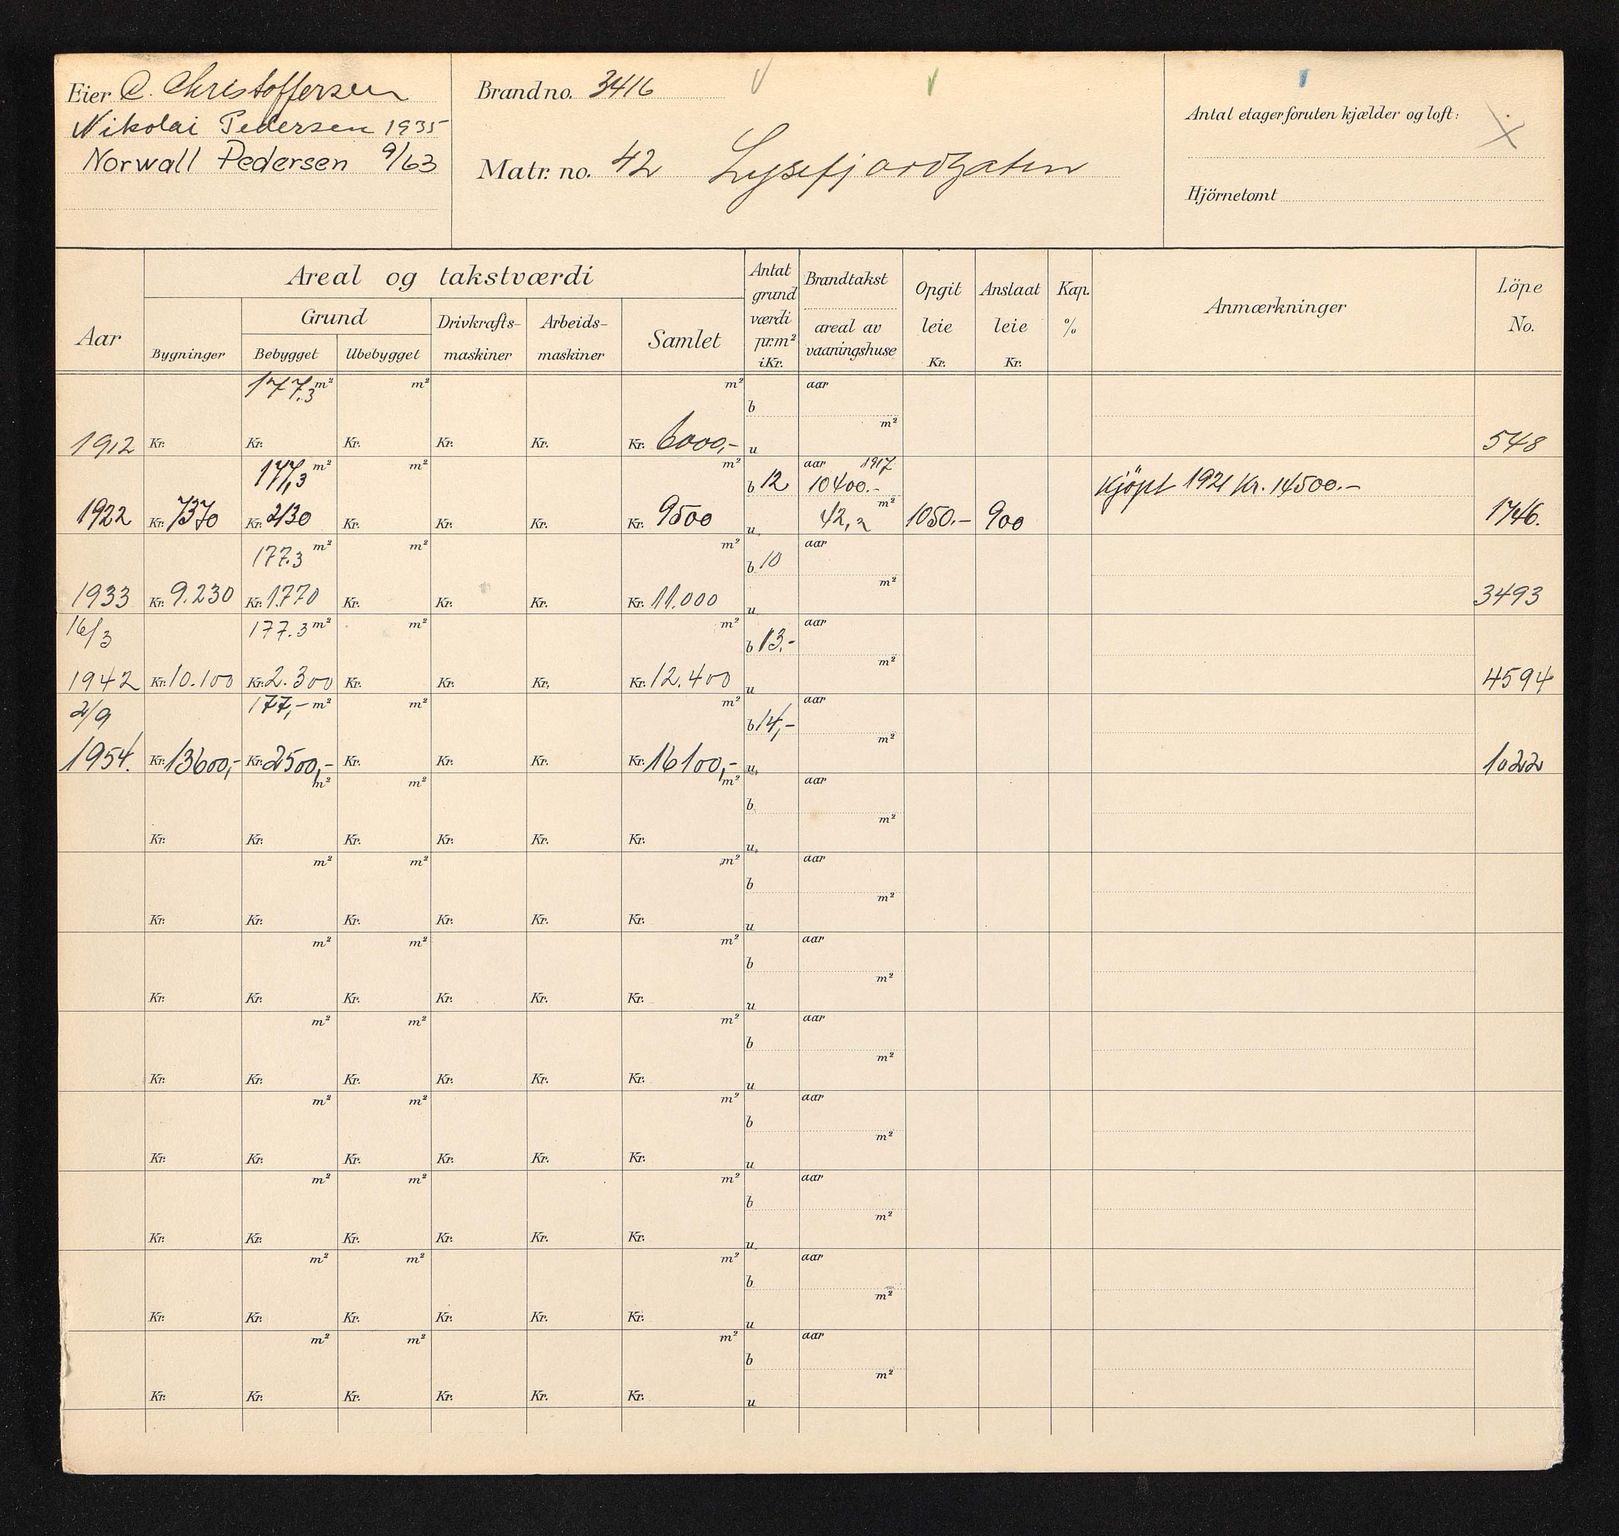 Eier C. Christoffersen
Nikolai Pedersen 1935
Norwall Pedersen 9/63
Brandno. 3416
Matr. no. 42 Lysefjordgaten
Antal etager foruten kjælder og loft:
Hjörnetomt
Aar
Areal og takstværdi
Bygninger
Grund
Bebygget Ubebygget
Drivkrafts-
maskiner
Arbeids-
maskiner
Samlet
Antat
grund
værdi
pr. m²
i Kr.
Brandtakst
areal av
vaaningshuse
Opgit
leie
Kr.
Anslaat
leie
Kr.
Kap.
%
Anmærkninger
Löpe
No.
177.3 m² m² m² b aar
m²
1912 Kr. Kr. Kr. Kr. Kr. Kr. 6000,- u 548
177,3 m² m² m² b 12 aar 1917
10400.- Kjöpt 1921 Kr. 14500.-
m²
1922 Kr. 7370 Kr. 2130 Kr. Kr. Kr. Kr. 9500 u 42,2 1050.- 900 1746.
177.3 m² m² m² b 10 aar
m²
1933 Kr. 9.230 Kr. 1.770 Kr. Kr. Kr. Kr. 11.000 u 3493
16/3 177.3 m² m² m² b 13.- aar
m²
1942 Kr. 10.100 Kr. 2.300 Kr. Kr. Kr. Kr. 12.400 u 4594
2/9 177,- m² m² m² b 14,- aar
m²
1954. Kr. 13600,- Kr. 2500,- Kr. Kr. Kr. Kr. 16100,- u 1022
m² m² m² b aar
m²
Kr. Kr. Kr. Kr. Kr. Kr. u
m² m² m² b aar
m²
Kr. Kr. Kr. Kr. Kr. Kr. u
m² m² m² b aar
m²
Kr. Kr. Kr. Kr. Kr. Kr. u
m² m² m² b aar
m²
Kr. Kr. Kr. Kr. Kr. Kr. u
m² m² m² b aar
m²
Kr. Kr. Kr. Kr. Kr. Kr. u
m² m² m² b aar
m²
Kr. Kr. Kr. Kr. Kr. Kr. u
m² m² m² b aar
m²
Kr. Kr. Kr. Kr. Kr. Kr. u
m² m² m² b aar
m²
Kr. Kr. Kr. Kr. Kr. Kr. u